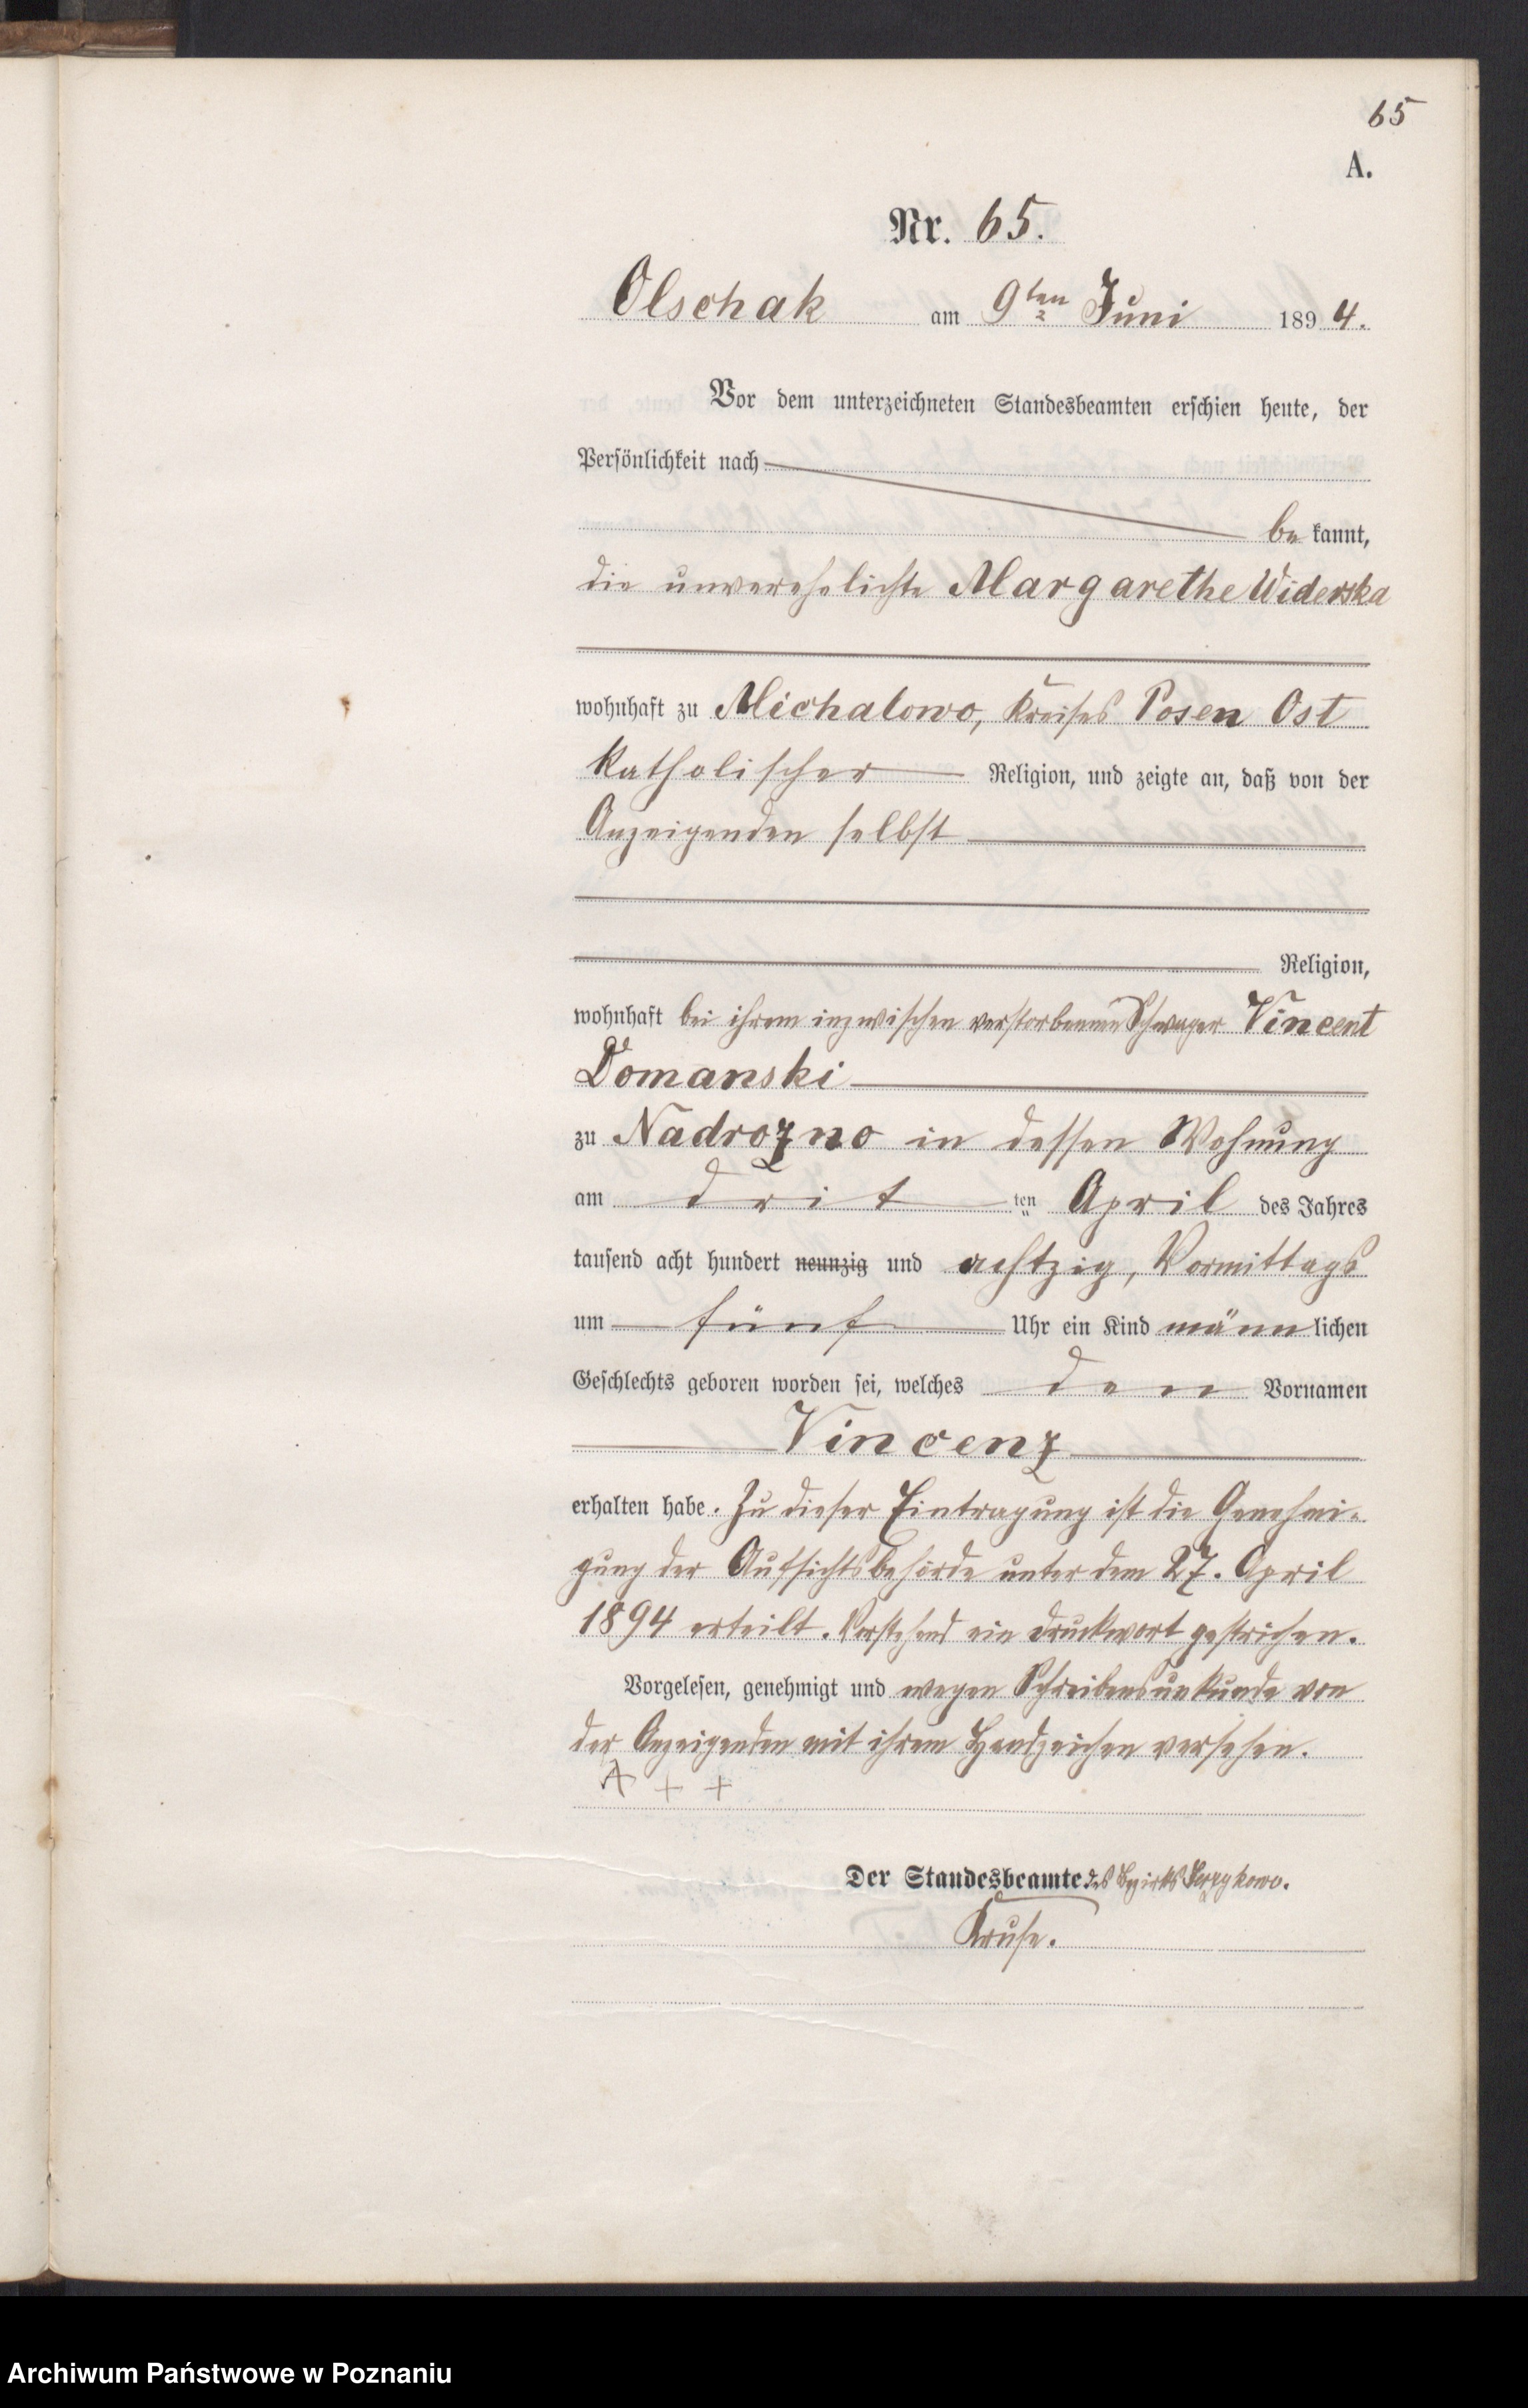 65
A.
Nr. 65.
Olschak am 9ten Juni 1894.
Vor dem unterzeichneten Standesbeamten erschien heute, der
Persönlichkeit nach
bekannt,
die unverehelichte Margarethe Widerska
wohnhaft zu Michalowo, Kreises Posen Ost
katholischer Religion, und zeigte an, daß von der
Anzeigenden selbst
Religion,
wohnhaft bei ihrem inzwischen verstorbenen Schwager Vincent
Domanski
zu Nadrozno in dessen Wohnung
am dritten April des Jahres
tausend acht hundert neunzig und achtzig, Vormittags
um fünf Uhr ein Kind männlichen
Geschlechts geboren worden sei, welches den Vornamen
Vincenz
erhalten habe. Zu dieser Eintragung ist die Genehmi-
gung der Aufsichtsbehörde unter dem 27. April
1894 erteilt. Vorstehend ein Druckwort gestrichen.
Vorgelesen, genehmigt und wegen Schreibensunkunde von
der Anzeigenden mit ihrem Handzeichen versehen.
+ + +
Der Standesbeamte des Bezirks
Kruse.
Archiwum Państwowe w Poznaniu